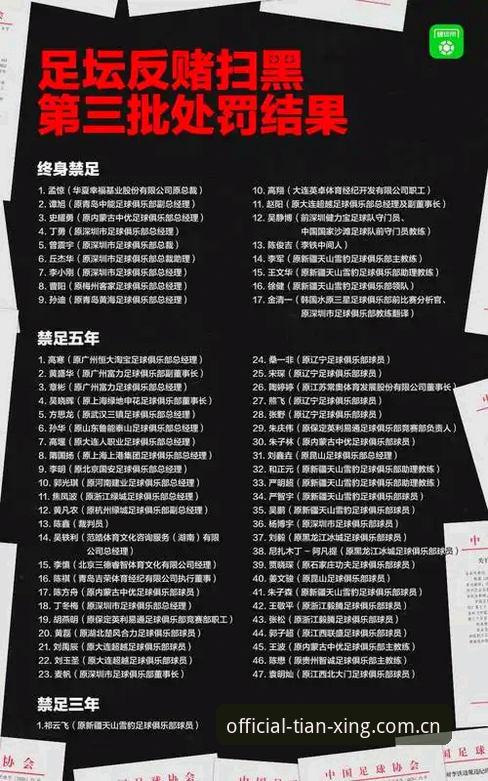 足坛反赌扫黑
第三批处罚结果
懂球帝
终身禁足
1. 孟惊（华夏幸福基业股份有限公司原总裁）
2. 谭旭（原青岛中能足球俱乐部副总经理）
3. 史耀勇（原内蒙古中优足球俱乐部总经理）
4. 丁勇（原深圳市足球俱乐部总经理）
5. 曾震宇（原深圳市足球俱乐部总裁）
6. 丘杰华（原深圳市足球俱乐部总裁助理）
7. 李小刚（原深圳市足球俱乐部总经理）
8. 曹阳（原梅州客家足球俱乐部总经理）
9. 孙迪（原青岛黄海足球俱乐部总经理）
10. 高翔（大连英卓体育经纪开发有限公司职工）
11. 赵阳（原大连超越足球俱乐部总经理及副董事长）
12. 吴静博（前深圳健力宝足球队守门员、
中国国家沙滩足球队前守门员教练）
13. 陈俊吉（李铁中间人）
14. 李军（原新疆天山雪豹足球俱乐部主教练）
15. 王文华（原新疆天山雪豹足球俱乐部助理教练）
16. 徐健（原新疆天山雪豹足球俱乐部领队）
17. 金清一（韩国水原三星足球俱乐部前比赛分析官、
原深圳市足球俱乐部教练翻译）
禁足五年
1. 高寒（原广州恒大淘宝足球俱乐部总经理）
2. 黄盛华（原广州富力足球俱乐部副董事长）
3. 章彬（原广州富力足球俱乐部总经理）
4. 吴晓晖（原上海绿地申花足球俱乐部董事长）
5. 方思龙（原武汉三镇足球俱乐部总经理）
6. 孙华（原山东鲁能泰山足球俱乐部总经理）
7. 高堰（原大连人职业足球俱乐部总经理）
8. 隋国扬（原上海上港集团足球俱乐部总经理）
9. 李明（原北京国安足球俱乐部总经理）
10. 郭光琪（原河南建业足球俱乐部总经理）
11. 焦凤波（原浙江绿城足球俱乐部总经理）
12. 黄凡农（原杭州绿城足球俱乐部副总经理）
13. 陈鑫（裁判员）
14. 吴轶利（范皓体育文化咨询服务（湖南）有限
公司总经理）
15. 李慎（北京三德睿智体育文化有限公司经理）
16. 陈祺（青岛吉荣体育经纪有限公司执行董事）
17. 陈方舟（原内蒙古中优足球俱乐部球员）
18. 丁冬梅（原深圳市足球俱乐部总经理）
19. 胡燕明（原保定英利易通足球俱乐部竞赛部职工）
20. 黄磊（原湖北楚风合力足球俱乐部球员）
21. 刘禹辰（原大连超越足球俱乐部球员）
22. 刘玉圣（原大连超越足球俱乐部球员）
23. 麦帆（原深圳市足球俱乐部董事长）
24. 桑一非（原辽宁足球俱乐部球员）
25. 宋琛（原辽宁足球俱乐部球员）
26. 陶婷婷（原江苏常奥体育发展股份有限公司董事长）
27. 熊飞（原辽宁足球俱乐部球员）
28. 张野（原辽宁足球俱乐部球员）
29. 朱庆伟（原保定英利易通足球俱乐部竞赛部负责人）
30. 朱子林（原内蒙古中优足球俱乐部球员）
31. 刘鑫垚（原昆山足球俱乐部球员）
32. 和正元（原新疆天山雪豹足球俱乐部助理教练）
33. 严明超（原新疆天山雪豹足球俱乐部助理教练）
34. 严智宇（原新疆天山雪豹足球俱乐部球员）
35. 吴鹏（原新疆天山雪豹足球俱乐部球员）
36. 杨博宇（原深圳市足球俱乐部球员）
37. 刘毅（原黑龙江冰城足球俱乐部球员）
38. 尼扎木丁－阿凡提（原黑龙江冰城足球俱乐部球员）
39. 贾晓琛（原石家庄功夫足球俱乐部球员）
40. 姜文骏（原昆山足球俱乐部球员）
41. 朱子森（原新疆天山雪豹足球俱乐部球员）
42. 王敬平（原浙江毅腾足球俱乐部球员）
43. 张松（原浙江毅腾足球俱乐部球员）
44. 郭子超（原江西联盛足球俱乐部球员）
45. 王波（原内蒙古中优足球俱乐部主教练）
46. 陈懋（原贵州智诚足球俱乐部主教练）
47. 袁明灿（原江西北大门足球俱乐部球员）
禁足三年
1.祁云飞（原新疆天山雪豹足球俱乐部球员）
official-tian-xing.com.cn
中国足球协会